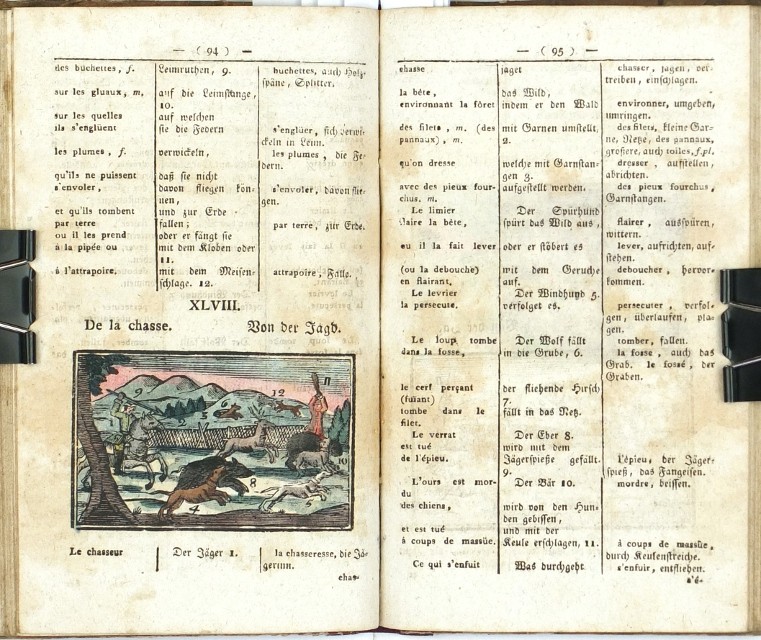 — ( 94 ) —
des buchettes, f. Leimruthen, 9. buchettes, auch Holz-
späne, Splitter.
sur les gluaux, m. auf die Leimstange,
10.
sur les quelles auf welchen
ils s'engluent sie die Federn s'engluer, sich verwi-
ckeln in Leim.
les plumes, f. verwickeln, les plumes, die Fe-
dern.
qu'ils ne puissent daß sie nicht
s'envoler, davon fliegen kön- s'envoler, davon flie-
nen, gen.
et qu'ils tombent und zur Erde
par terre fallen; par terre, zur Erde.
ou il les prend oder er fängt sie
à la pipée ou mit dem Kloben oder
11.
à l'attrapoire. mit dem Meisen- attrapoire, Falle.
schlage. 12.
XLVIII.
De la chasse. Von der Jagd.
9
12
11
5
6
10
8
4
5
Le chasseur Der Jäger 1. la chasseresse, die Jä-
gerinn.
chas-
— ( 95 ) —
chasse jaget chasser, jagen, ver-
treiben, einschlagen.
la bête, das Wild,
environnant la fôret indem er den Wald environner, umgeben,
umringen.
des filets, m. (des mit Garnen umstellt, des filets, kleine Gar-
pannaux), m. 2. ne, Netze, des pannaux,
großere, auch toiles, f. pl.
qu'on dresse welche mit Garnstan- dresser, aufstellen,
gen 3. abrichten.
avec des pieux four- aufgestellt werden. des pieux fourchus,
chus. m. Garnstangen.
Le limier Der Spürhund
flaire la bête, spürt das Wild aus, flairer, ausspüren,
wittern.
ou il la fait lever oder er stöbert es lever, aufrichten, auf-
stehen.
(ou la debouche) mit dem Geruche deboucher, hervor-
en flairant, auf. kommen.
Le levrier Der Windhund 5.
la persecute. verfolget es. persecuter, verfol-
gen, überlaufen, pla-
gen.
Le loup tombe Der Wolf fällt tomber, fallen.
dans la fosse, in die Grube, 6. la fosse, auch das
Grab. le fossé, der
Graben.
le cerf perçant der fliehende Hirsch
(fuiant) 7.
tombe dans le fällt in das Netz.
filet.
Le verrat Der Eber 8.
est tué wird mit dem
de l'épieu. Jägerspieße gefällt. l'épieu, der Jäger-
9. spieß, das Fangeisen.
L'ours est mor- Der Bär 10. mordre, beissen.
du
des chiens, wird von den Hun-
den gebissen,
et est tué und mit der
à coups de massüe. Keule erschlagen, 11. à coups de massüe,
durch Keulenstreiche.
Ce qui s'enfuit Was durchgeht s'enfuir, entfliehen.
s'é-